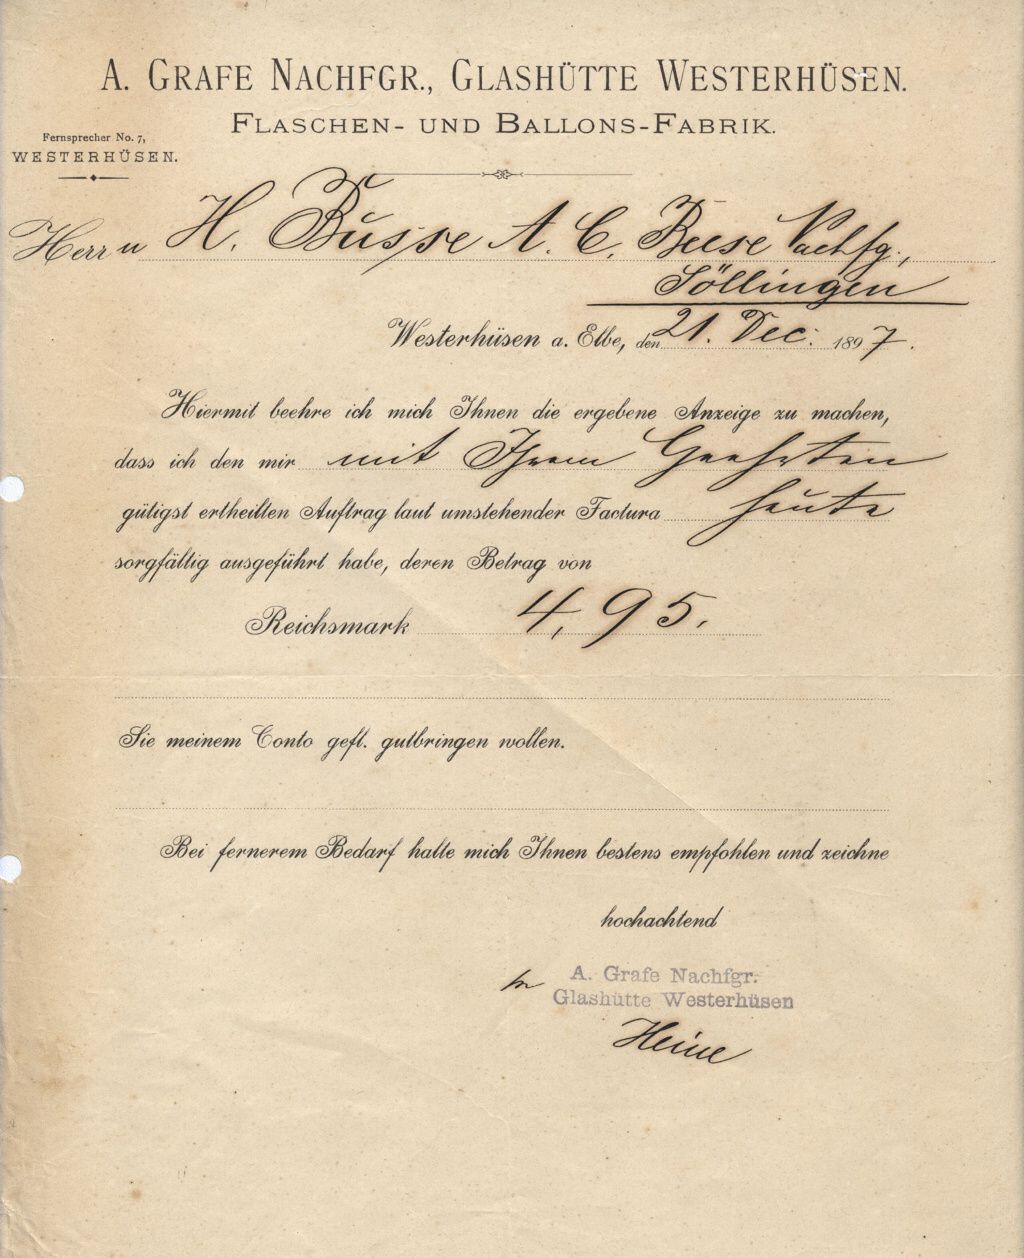 A. GRAFE NACHFGR., GLASHÜTTE WESTERHÜSEN.
FLASCHEN- UND BALLONS-FABRIK.
Fernsprecher No. 7,
WESTERHÜSEN.
Herrn H. Busse A. C. Beese Nachfg.,
Söllingen
Westerhüsen a. Elbe, den 21. Dec. 1897.
Hiermit beehre ich mich Ihnen die ergebene Anzeige zu machen,
dass ich den mir mit Ihrem Geehrten
gütigst ertheilten Auftrag laut umstehender Factura heute
sorgfältig ausgeführt habe, deren Betrag von
Reichsmark 4,95.
Sie meinem Conto gefl. gutbringen wollen.
Bei fernerem Bedarf halte mich Ihnen bestens empfohlen und zeichne
hochachtend
A. Grafe Nachfgr.
Glashütte Westerhüsen
Heine